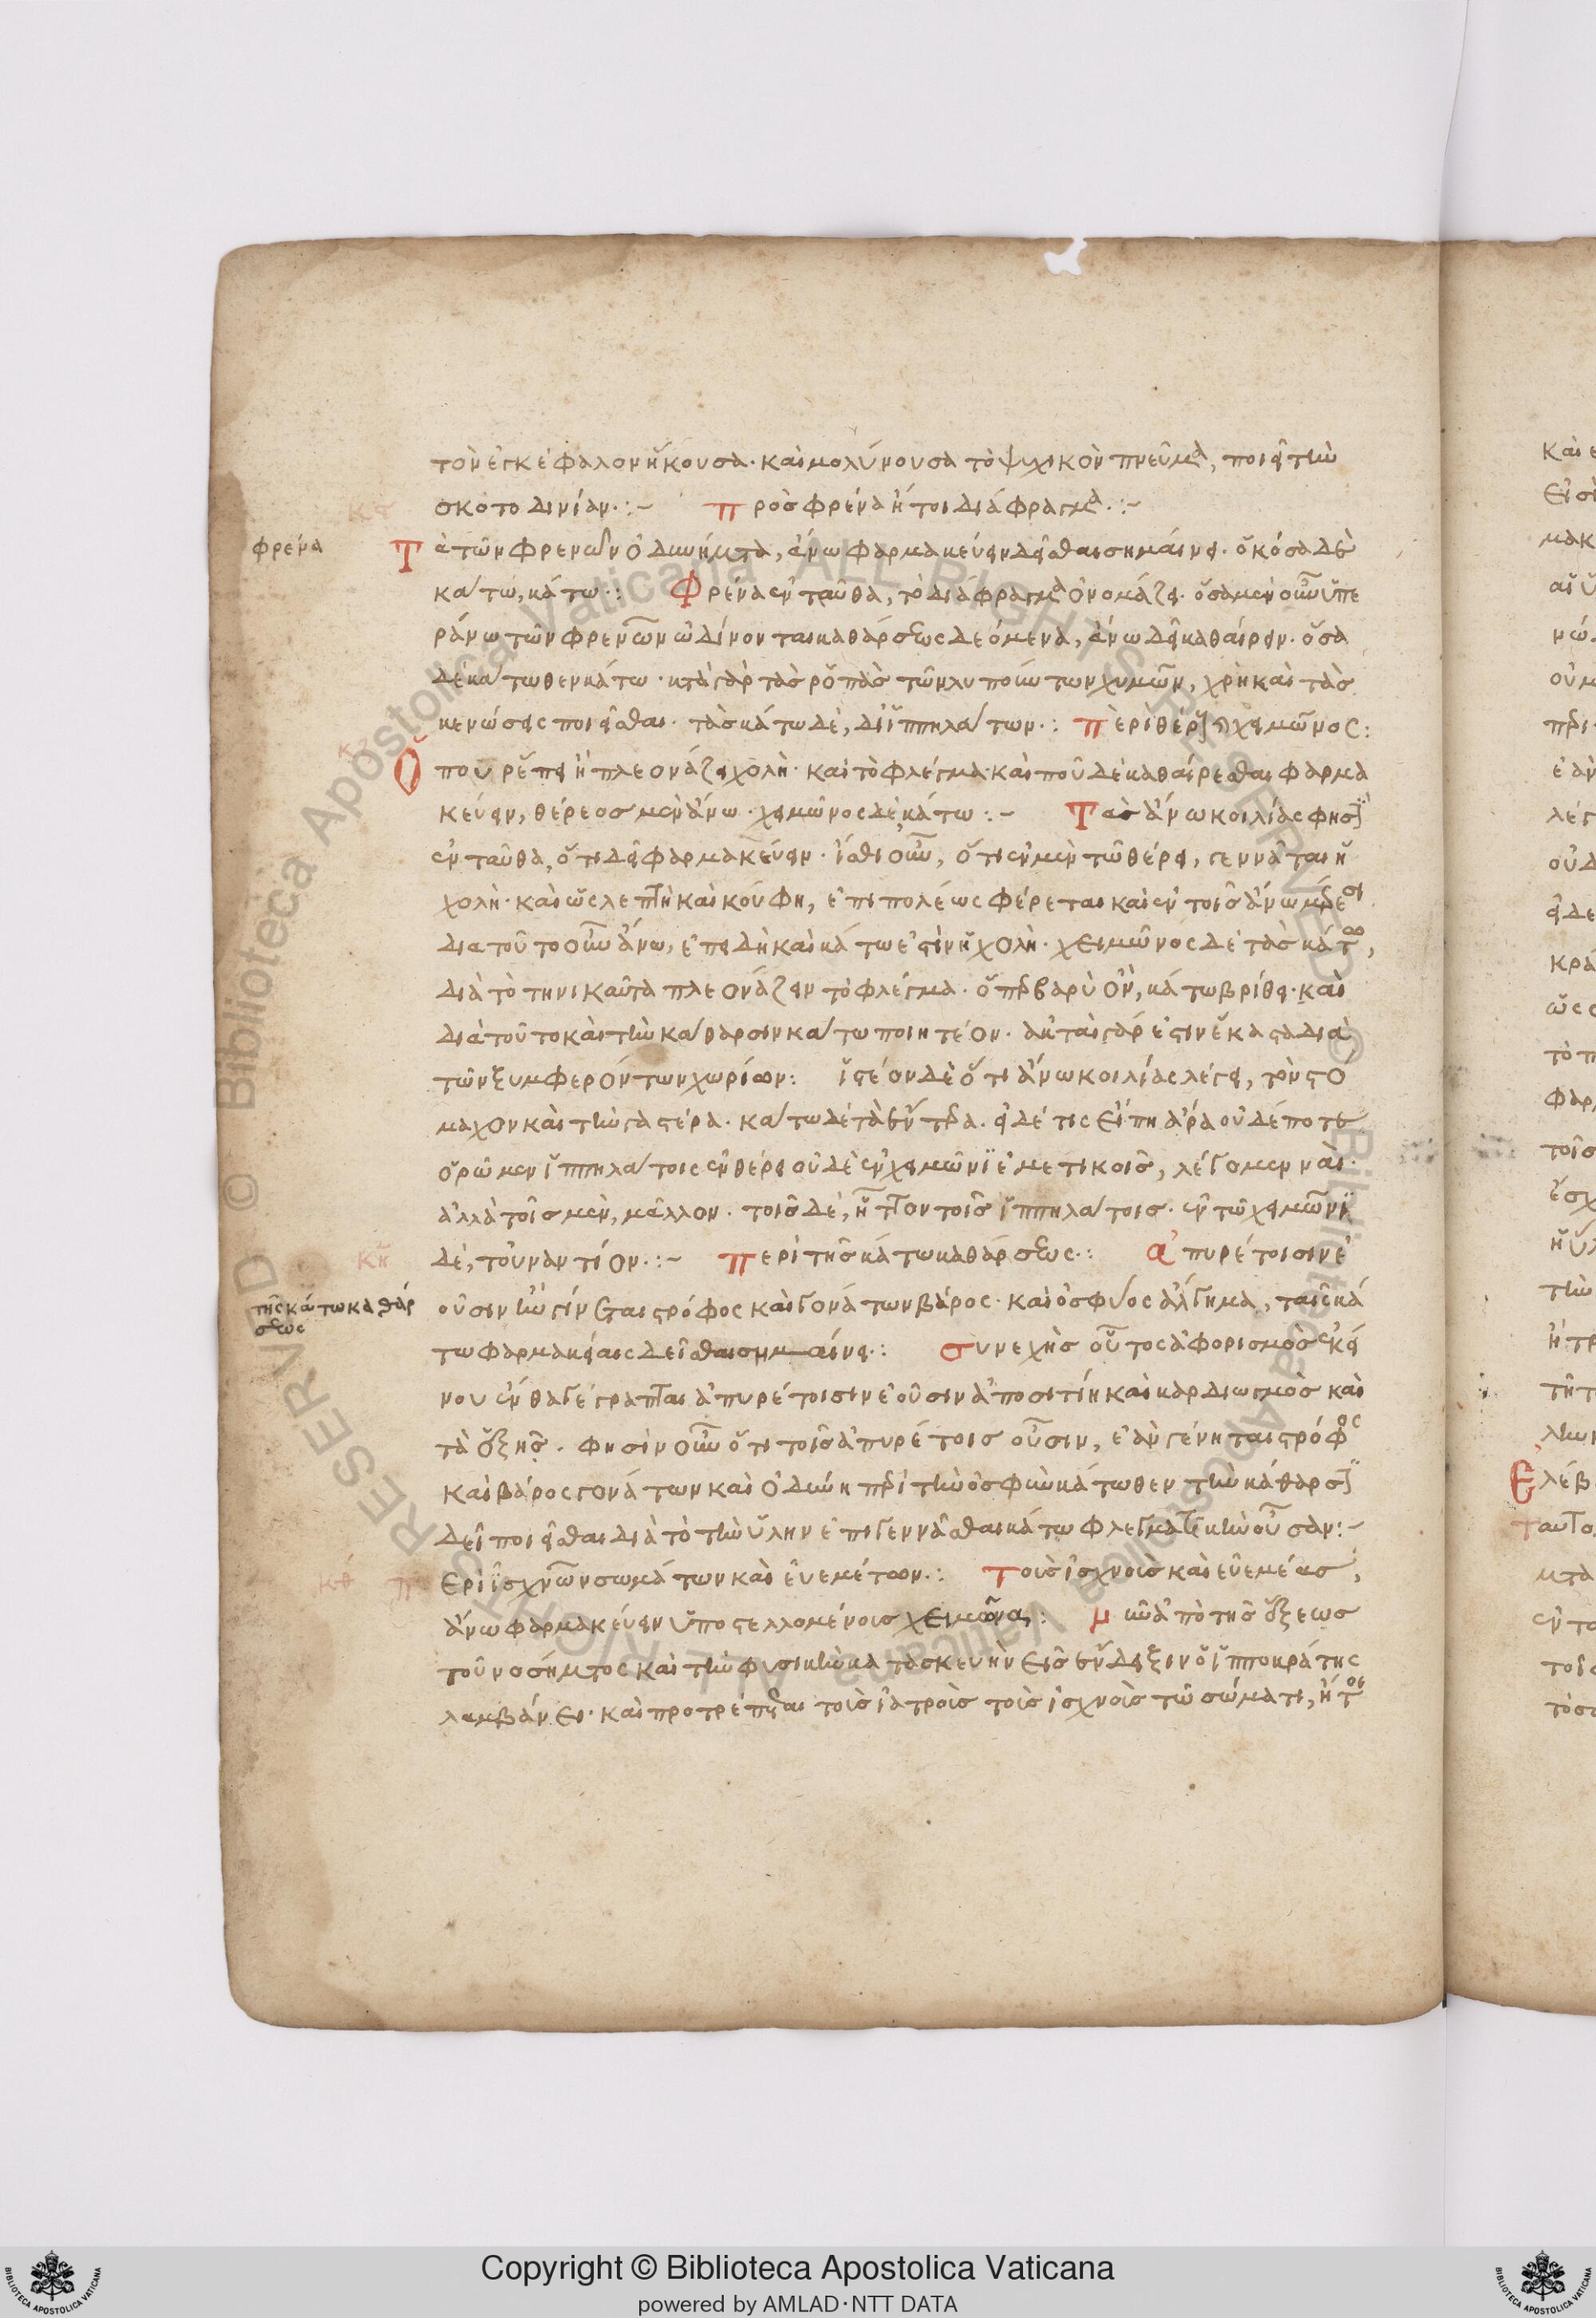 τὸν ἐγκέφαλον ἥκουσα· καὶ μολύνουσα τὸ ψυχικὸν πνεῦμα, ποιεῖ τὴν
σκοτοδινίαν·:– πρὸς φρένα ἤτοι διάφραγμα·:–
φρένα
Τὰ τῶν φρενῶν ὀδυνήματα, ἄνω φαρμακεύειν δεῖσθαι σημαίνει· ὁκόσα δὲ
κάτω, κάτω·: Φρένας ἐνταῦθα, τὸ διάφραγμα ὀνομάζει· ὅσα μὲν οὖν ὑπε
ράνω τῶν φρενῶν ὠδίνονται καθάρσεως δεόμενα, ἄνω δεῖ καθαίρειν· ὅσα
δὲ κάτωθεν κάτω· κατὰ γὰρ τὰς ῥοπὰς τῶν λυποούντων χυμῶν, χρὴ καὶ τὰς
κενώσεις ποιεῖσθαι· τὰς κάτω δὲ, δι' ὑπηλάτων·: περὶ θέρους καὶ χειμῶνος:
Ὅπου ῥέπει ἢ πλεονάζει χολὴ· καὶ τὸ φλέγμα· καὶ ποῦ δὲ καθαίρεσθαι φαρμα
κεύειν, θέρεος μὲν ἄνω· χειμῶνος δὲ κάτω:– Τὰς ἄνω κοιλίας φησὶν
ἐνταῦθα, ὅτι δεῖ φαρμακεύειν· ἴσθι οὖν, ὅτι ἐν μὲν τῶ θέρει, γεννᾶται ἡ
χολὴ· καὶ ὡς λεπτὴ καὶ κούφη, ἐπιπολέως φέρεται καὶ ἐν τοῖς ἄνω μέρεσι
διατοῦτο οὖν ἄνω, ἐπειδὴ καὶ κάτω ἐστὶν ἡ χολὴ· χειμῶνος δὲ τὰς κάτω,
διὰ τὸ τηνικαῦτα πλεονάζειν τὸ φλέγμα· ὅπερ βαρὺ ὂν, κάτω βρίθει· καὶ
διατοῦτο καὶ τὴν κάθαρσιν κάτω ποιητέον· ἀκταὶ γάρ ἐστιν ἕκαστα διὰ
τῶν ξυμφερόντων χωρίων: ἰστέον δὲ ὅτι ἄνω κοιλίας λέγει, τὸν στό
μαχον καὶ τὴν γαστέρα· κάτω δὲ τὰ ἔντερα· εἰ δέ τις εἴπη ἄρα οὐδέποτε
ὁρῶμεν ὑπηλάτοις ἐν θέρει οὐδὲ ἐν χειμῶνι ἐμετικοῖς, λέγομεν ναὶ·
ἀλλὰ τοῖς μὲν, μᾶλλον· τοῖς δὲ, ἧττον τοῖς ὑπηλάτοις· ἐν τῶ χειμῶνι
δὲ, τοὐναντίον·:– περὶ τῆς κάτω καθάρσεως·: ἀπυρέτοισιν ἐ
κη
τῆς κάτω καθάρ
σεως
οῦσιν ἢν γίνηται στρόφος καὶ γονάτων βάρος· καὶ ὀσφύος ἄλγημα, ταῖς κά
τω φαρμακείαις δεῖσθαι σημαίνει·: συνεχὴς οὗτος ἀφορισμὸς ἐκεί
νου ἔνθα γέγραπται ἀπυρέτοισιν ἐοῦσιν ἀποσιτίη καὶ καρδιωγμὸς καὶ
τὰ ἑξῆς· φησὶν οὖν ὅτι τοῖς ἀπυρέτοις οὖσιν, ἐὰν γένηται στρόφος
καὶ βάρος γονάτων καὶ ὀδύνη περὶ τὴν ὀσφὺν κάτωθεν τὴν κάθαρσιν
δεῖ ποιεῖσθαι διὰ τὸ τὴν ὕλην ἐπιγεννᾶσθαι κάτω φλεγματικὴν οὖσαν:–
κθ
περὶ ἰσχνῶν σωμάτων καὶ εὐεμέτων·: τοὺς ἰσχνοὺς καὶ εὐεμέας,
ἄνω φαρμακεύειν ὑποστελλομένοις χειμῶνα: μ ἀπὸ τῆς ἕξεως
τοῦ νοσήματος καὶ τὴν φυσικὴν κατασκευὴν εἰς ἔνδειξιν ὁ ἱπποκράτης
λαμβάνει· καὶ προτρέπεται τοῖς ἰατροῖς τοὺς ἰσχνοὺς τῶ σώματι, ἤτοι
Copyright © Biblioteca Apostolica Vaticana
powered by AMLAD·NTT DATA